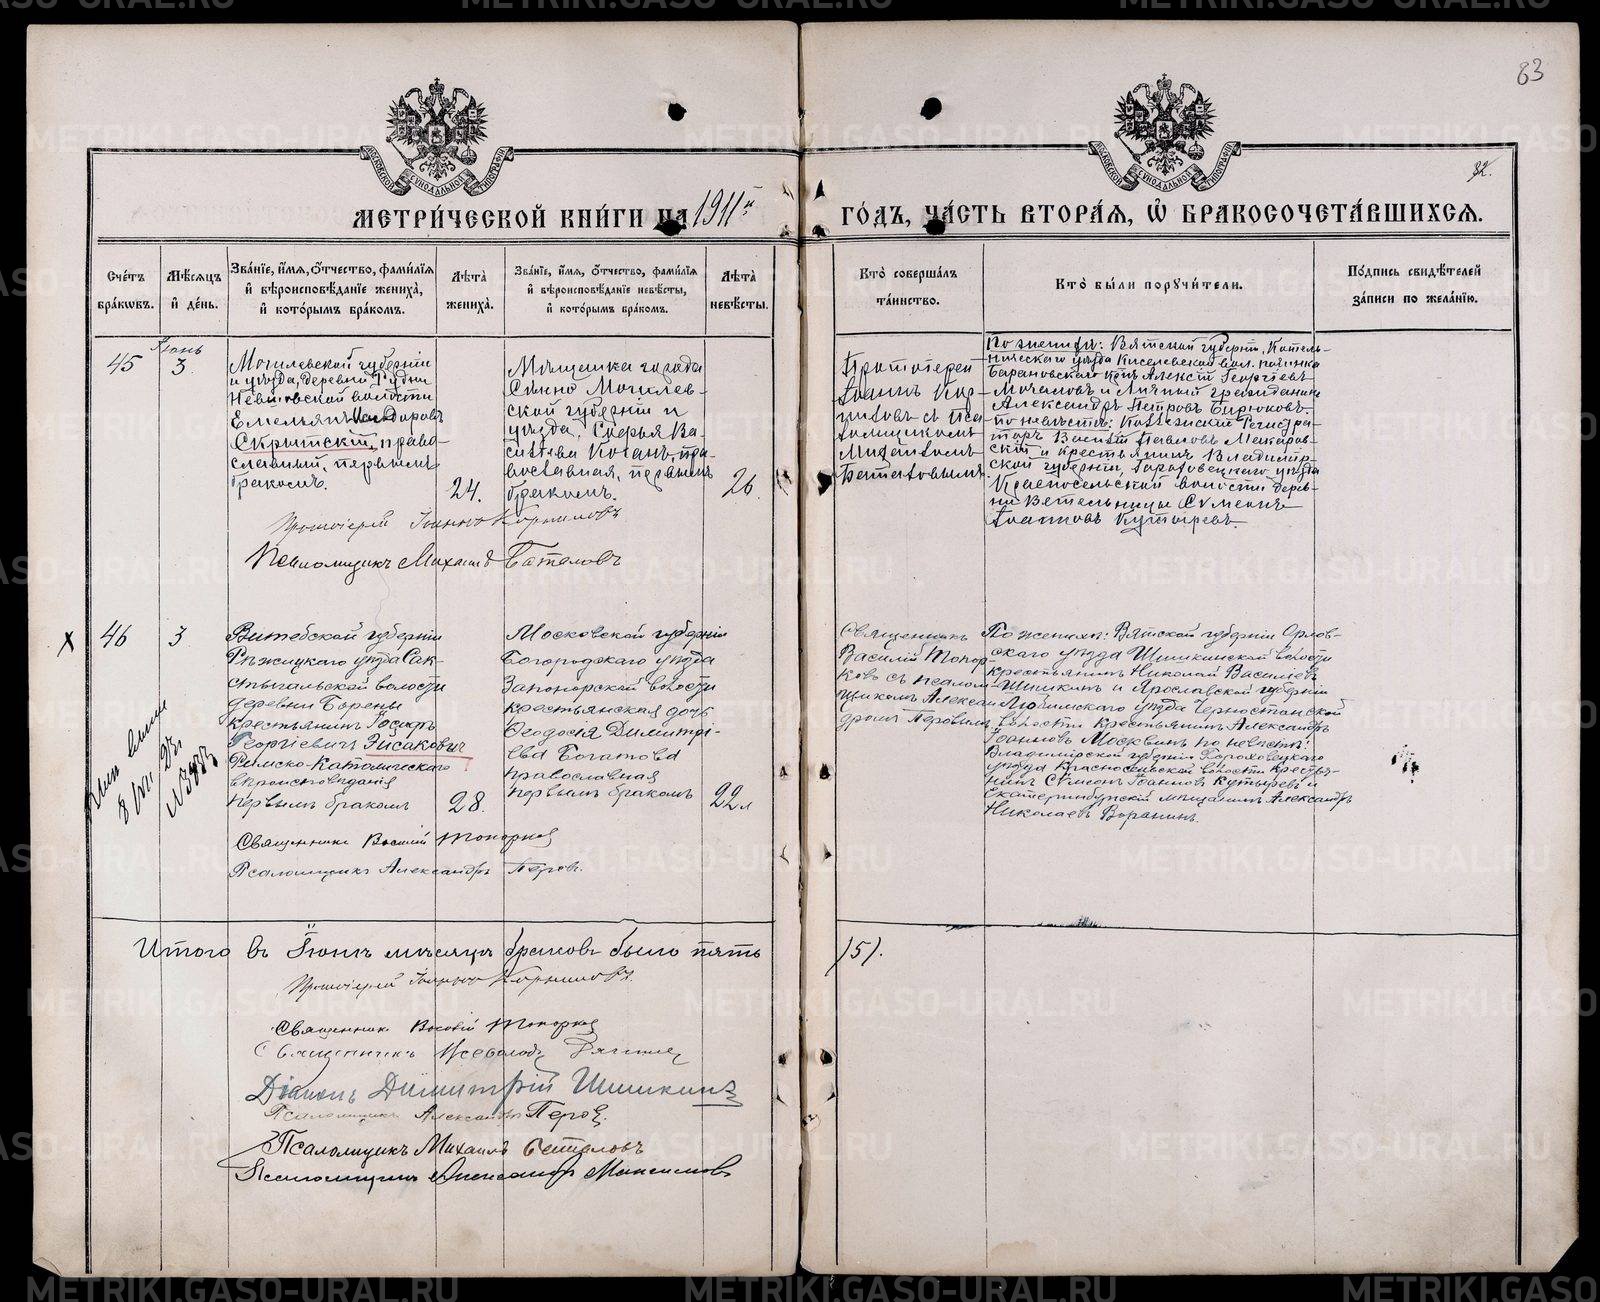 83
82.
МОСКОВСКОЙ СѴНОДАЛЬНОЙ ТИПОГРАФІИ
МОСКОВСКОЙ СѴНОДАЛЬНОЙ ТИПОГРАФІИ
МЕТРИ́ЧЕСКОЙ КНИ́ГИ НА 1911й ГО́ДЪ, ЧА́СТЬ ВТОРА́Ѧ, Ѽ БРАКОСОЧЕТА́ВШИХСѦ.
Сче́тъ бра́кѡвъ.
Мѣ́сѧцъ и́ де́нь.
Зва́нїе, и́мѧ, ѻ́тчество, фами́лїѧ и́ вѣроисповѣ́данїе жениха̀, и́ кото́рымъ бра́комъ.
Лѣ́та жениха̀.
Зва́нїе, и́мѧ, ѻ́тчество, фами́лїѧ и́ вѣроисповѣ́данїе невѣ́сты, и́ кото́рымъ бра́комъ.
Лѣ́та невѣ́сты.
Кто̀ соверша́лъ та́инство.
Кто̀ бы́ли порꙋчи́тели.
По́дпись свидѣ́телей за́писи по жела́нїю.
45
Іюнь
3
Могилевской губерніи
и уѣзда, деревни Рудни
волости
Емельянъ
Скрытскій, право-
славный, первымъ
бракомъ.
24.
Мѣщанка города
Сѣнно Могилев-
ской губерніи и
уѣзда, Софья Ва-
сильева Коганъ, пра-
вославная, первымъ
бракомъ.
26.
Протоіерей
Іоаннъ Кор-
ниловъ съ пса-
ломщикомъ
Михаиломъ
Баталовымъ
По женихѣ: Вятской губерніи, Котель-
ническаго уѣзда Киселевской вол. починка
Барановскаго кр-нъ Алексій Георгіевъ
Мочаловъ и Личный гражданинъ
Александръ Петровъ Бирюковъ.
по невѣстѣ: Коллежскій Регистра-
торъ Василій Павловъ Макаров-
скій и крестьянинъ Владимір-
ской губерніи, Гороховецкаго уѣзда
Красносельской волости дерев-
ни Ветельницы Симеонъ
Іоанновъ Кутыревъ.
Протоіерей Іоаннъ Корниловъ
Псаломщикъ Михаилъ Баталовъ
х
46
3
Витебской губерніи
Рѣжицкаго уѣзда Сак-
стыгальской волости
деревни Борены
крестьянинъ Іосифъ
Георгіевичъ Эйсаковичъ
Римско-Католическаго
вѣроисповѣданія
первымъ бракомъ
28.
Московской губерніи
Богородскаго уѣзда
Запонорской волости
крестьянская дочь
Ѳеодосія Димитрі-
ева Богатова
православная
первымъ бракомъ
22 л
Священникъ
Василій Топор-
ковъ съ псалом-
щикомъ Алексан-
дромъ Перовымъ
По женихѣ: Вятской губерніи Орлов-
скаго уѣзда Шишкинской волости
крестьянинъ Николай Васильевъ
Шишкинъ и Ярославской губерніи
Любимскаго уѣзда Черностанской
волости крестьянинъ Александръ
Іоанновъ Москвинъ по невѣстѣ:
Владимірской губерніи Гороховецкаго
уѣзда Красносельской волости крестья-
нинъ Симеонъ Іоанновъ Кутыревъ и
Екатеринбургскій мѣщанинъ Александръ
Николаевъ Воронинъ.
Священникъ Василій Топорков
Псаломщикъ Александръ Перов.
Итого въ Іюнѣ мѣсяцѣ браковъ было пять /5/.
Протоіерей Іоаннъ Корниловъ.
Священникъ Василій Топорков
Священникъ Всеволодъ
Діаконъ Димитрій Шишкинъ
Псаломщикъ Александръ Перов.
Псаломщикъ Михаилъ Баталовъ
Псаломщикъ Александр Максимовъ
METRIKI.GASO-URAL.RU